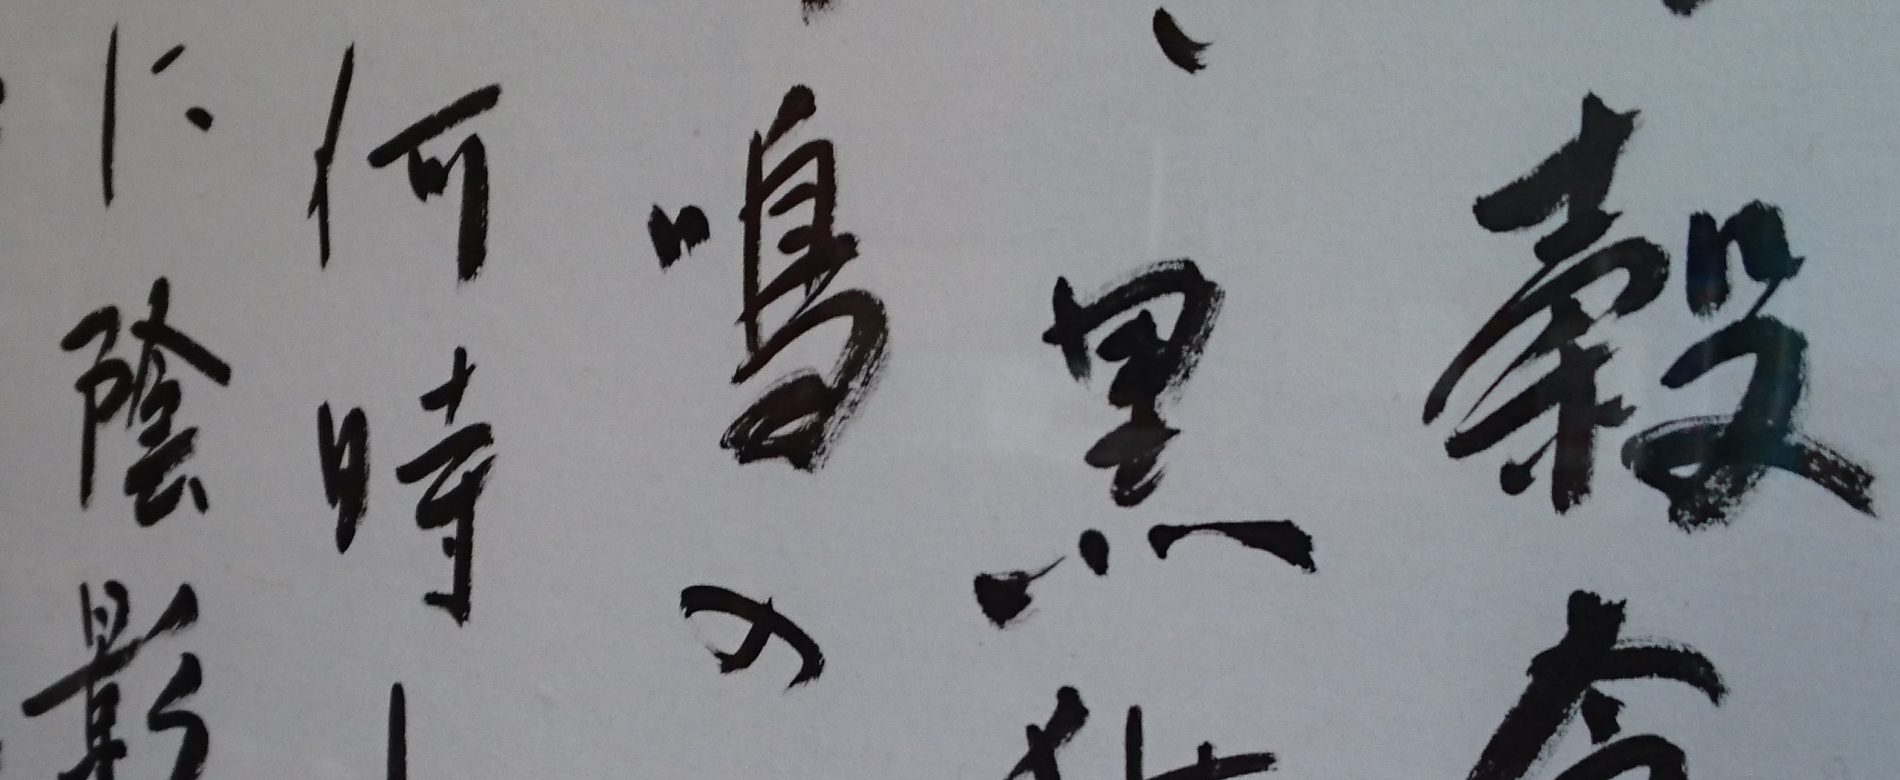 穀倉
黒
鳴の
何時
に陰影